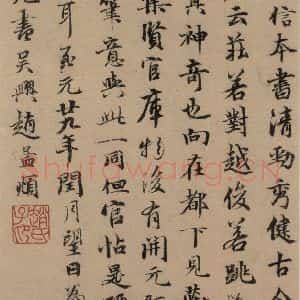 信本書清勁秀健古今
云莊若對越俊若跳
其神奇也向在都下見
集賢官庫物後有開元
筆意與此一同但官帖是
耳至元廿九年閏月望日為
兄書吳興趙孟頫
趙氏子昂
shufawang.cn